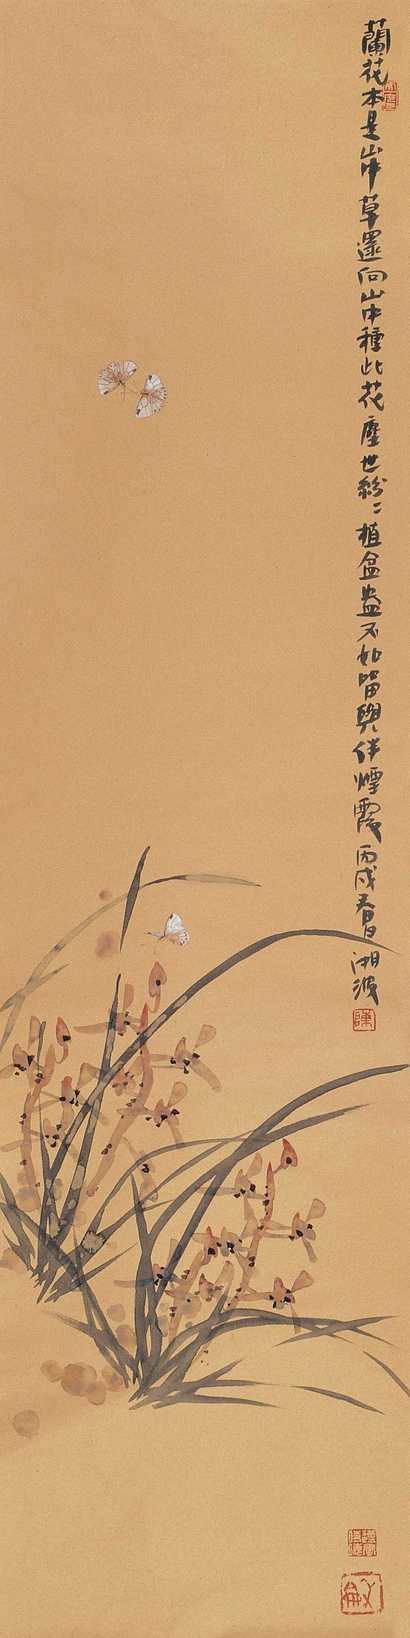 蘭花本是山中草還向山中種此花塵世紛〻植盆盎不如留與伴煙霞丙戌春日湘波
陳